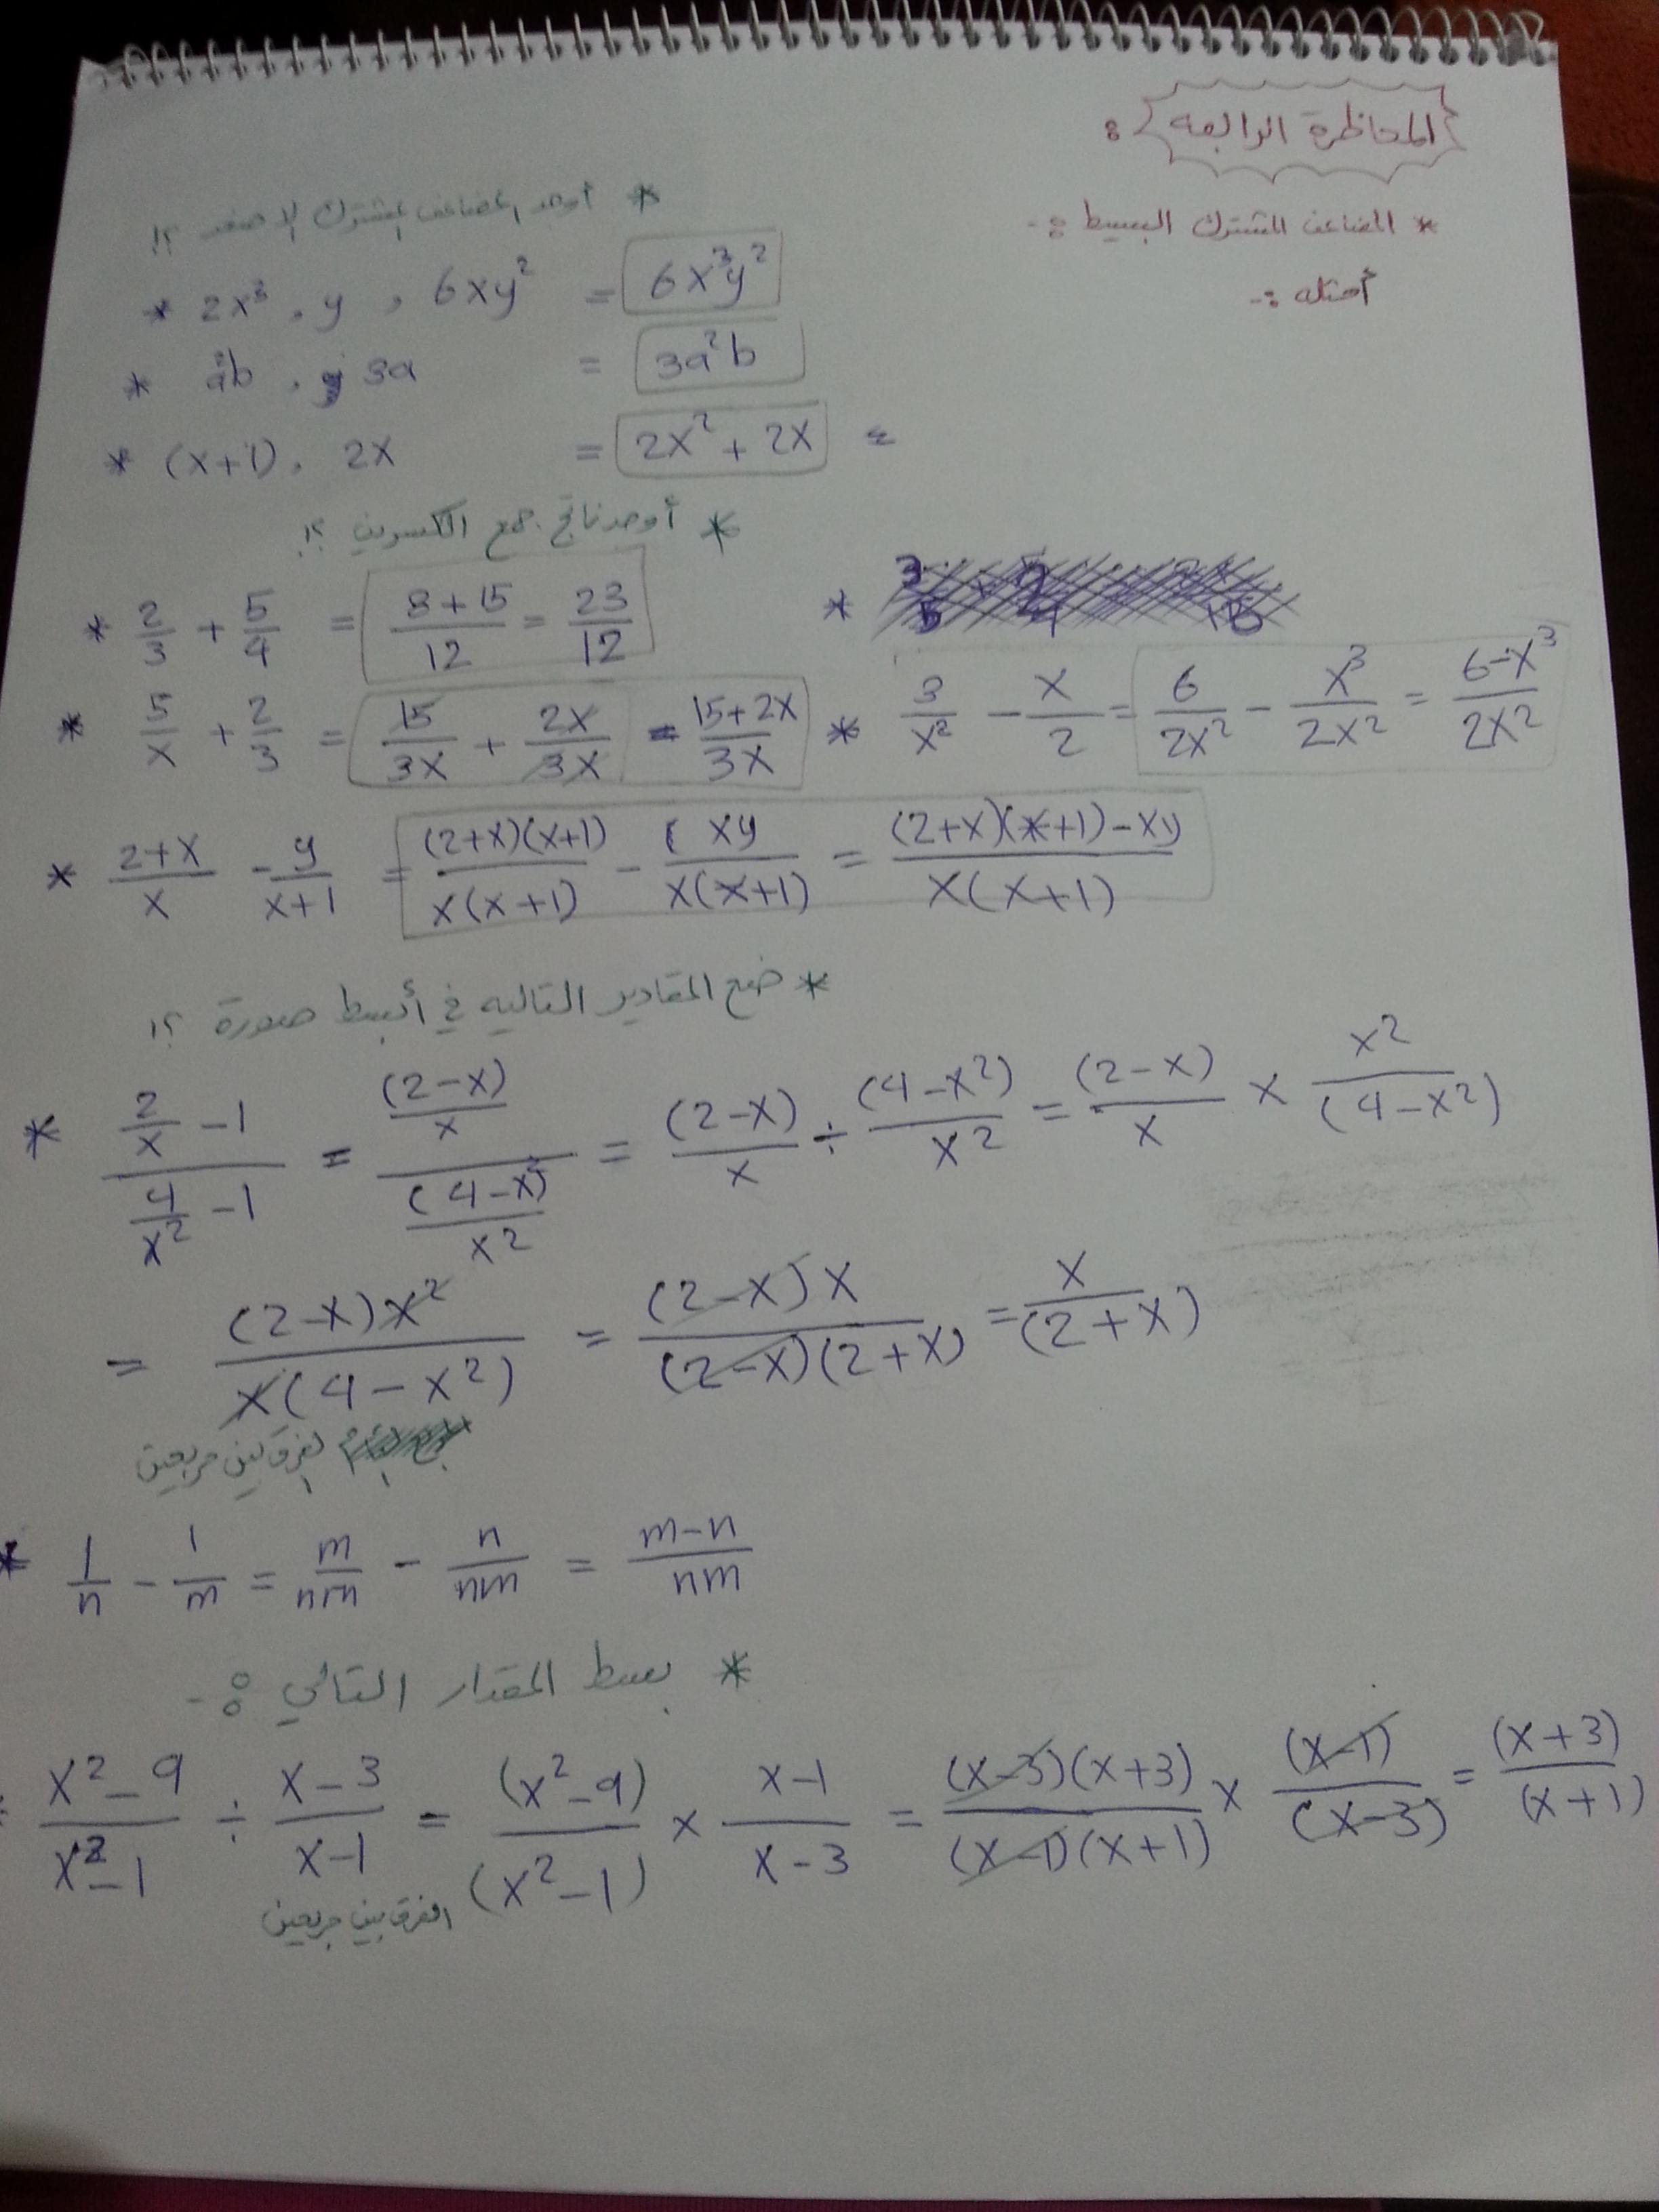 المحاظرة الرابعه :
* المضاعف المشترك البسيط :-
أمثله :-
* أوجد المضاعف المشترك الاصغر ؟!
* 2x³ , y , 6xy² = 6x³y²
* a²b , 3a = 3a²b
* (x+1) , 2x = 2x² + 2x =
* أوجد ناتج جمع الكسرين ؟!
* 2/3 + 5/4 = (8+15)/12 = 23/12 *
* 5/x + 2/3 = 15/3x + 2x/3x = (15+2x)/3x * 3/x² - x/2 = 6/2x² - x³/2x² = (6-x³)/2x²
* (2+x)/x - y/(x+1) = (2+x)(x+1)/x(x+1) - (xy/x(x+1) = ((2+x)(x+1)-xy)/x(x+1)
* ضع المقادير التاليه في أبسط صورة ؟!
* (2/x - 1)/(4/x² - 1) = ((2-x)/x)/((4-x²)/x²) = (2-x)/x ÷ (4-x²)/x² = (2-x)/x × x²/(4-x²)
= (2-x)x²/x(4-x²) = (2-x)x/(2-x)(2+x) = x/(2+x)
الفرق بين مربعين
* 1/n - 1/m = m/nm - n/nm = (m-n)/nm
* بسط المقدار التالي :-
(x²-9)/(x²-1) ÷ (x-3)/(x-1) = (x²-9)/(x²-1) × (x-1)/(x-3) = (x-3)(x+3)/(x-1)(x+1) × (x-1)/(x-3) = (x+3)/(x+1)
الفرق بين مربعين